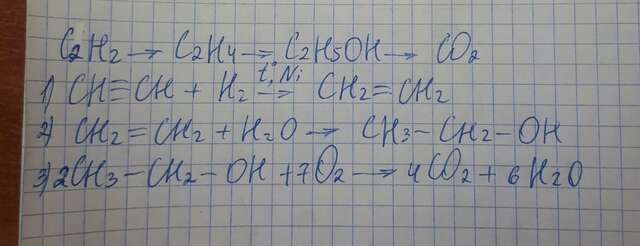 C2H2 → C2H4 → C2H5OH → CO2
1) CH≡CH + H2 t°, Ni → CH2=CH2
2) CH2=CH2 + H2O → CH3-CH2-OH
3) 2CH3-CH2-OH + 7O2 → 4CO2 + 6H2O